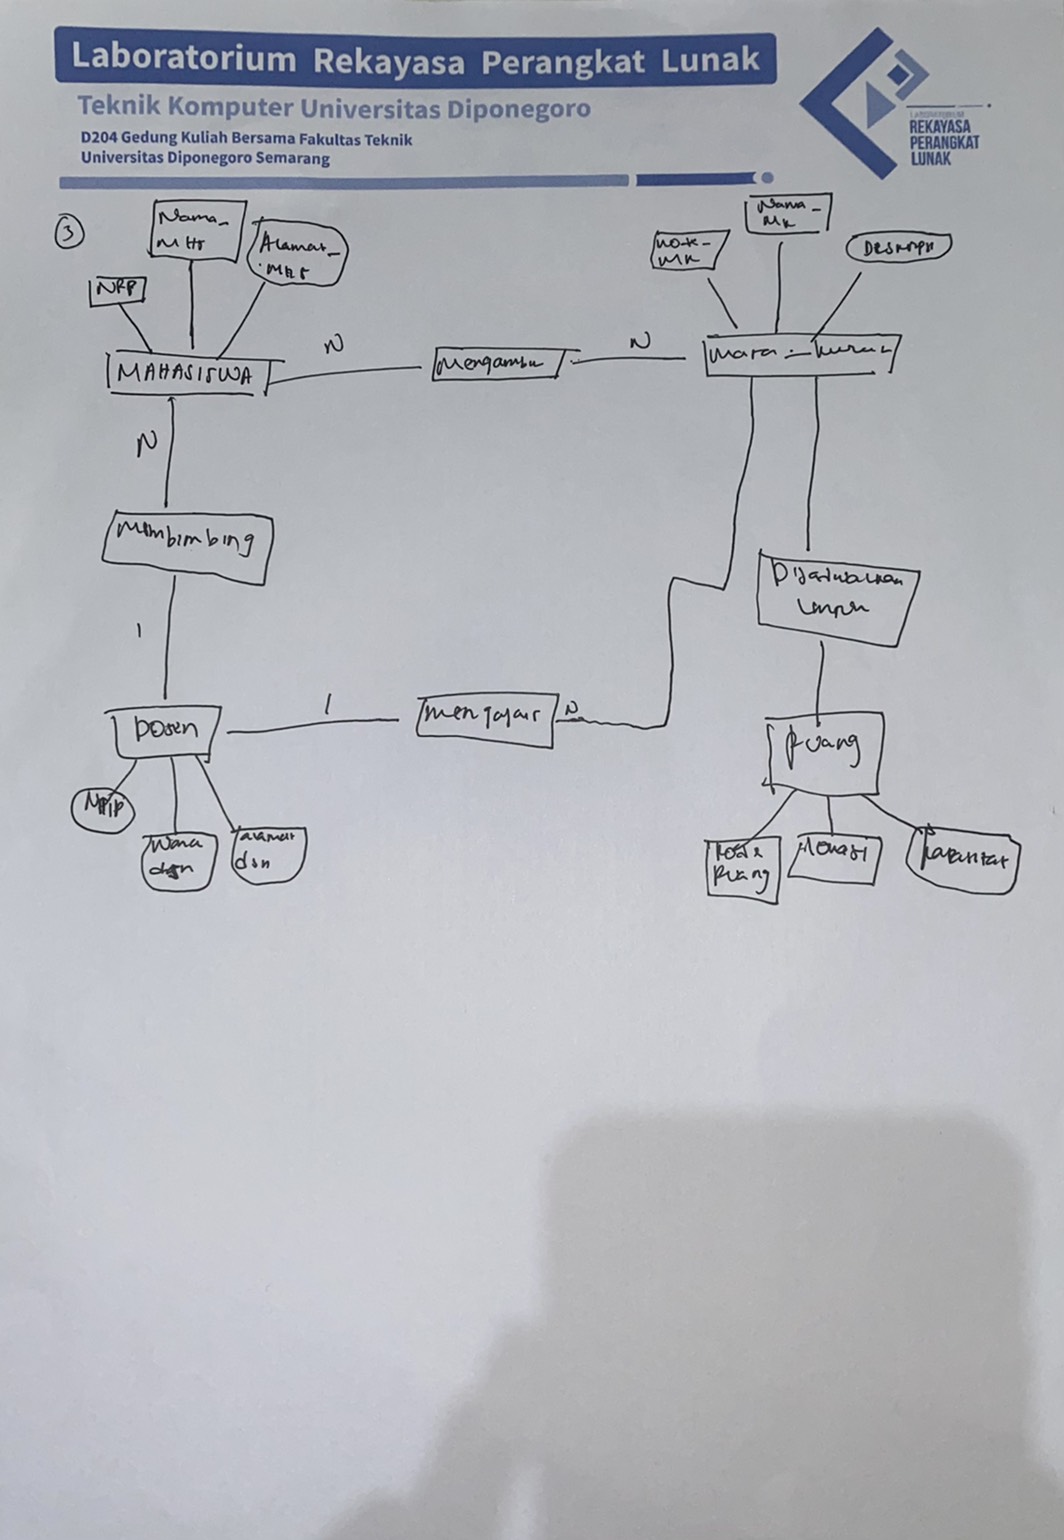 Laboratorium Rekayasa Perangkat Lunak
Teknik Komputer Universitas Diponegoro
D204 Gedung Kuliah Bersama Fakultas Teknik
Universitas Diponegoro Semarang
LABORATORIUM
REKAYASA
PERANGKAT
LUNAK
3
Nama_
MHS
Alamat_
MHS
NRP
Nama_
MK
MK
MAHASISWA
N
Mengambil
N
N
Membimbing
1
Dosen
1
mengajar
N
Ruang
NIP
Nama
dsn
alamat
dsn
Kode
Ruang
Lokasi
Kapasitas